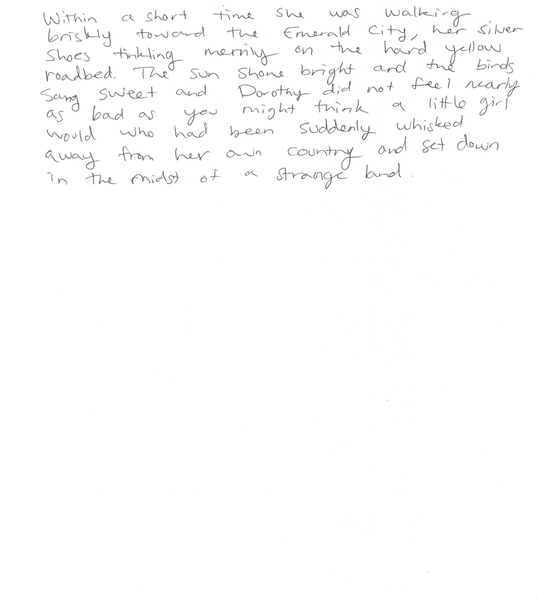 Within a short time she was walking
briskly toward the Emerald City, her silver
shoes tinkling merrily on the hard yellow
roadbed. The sun shone bright and the birds
sang sweet and Dorothy did not feel nearly
as bad as you might think a little girl
would who had been suddenly whisked
away from her own country and set down
in the midst of a strange land.